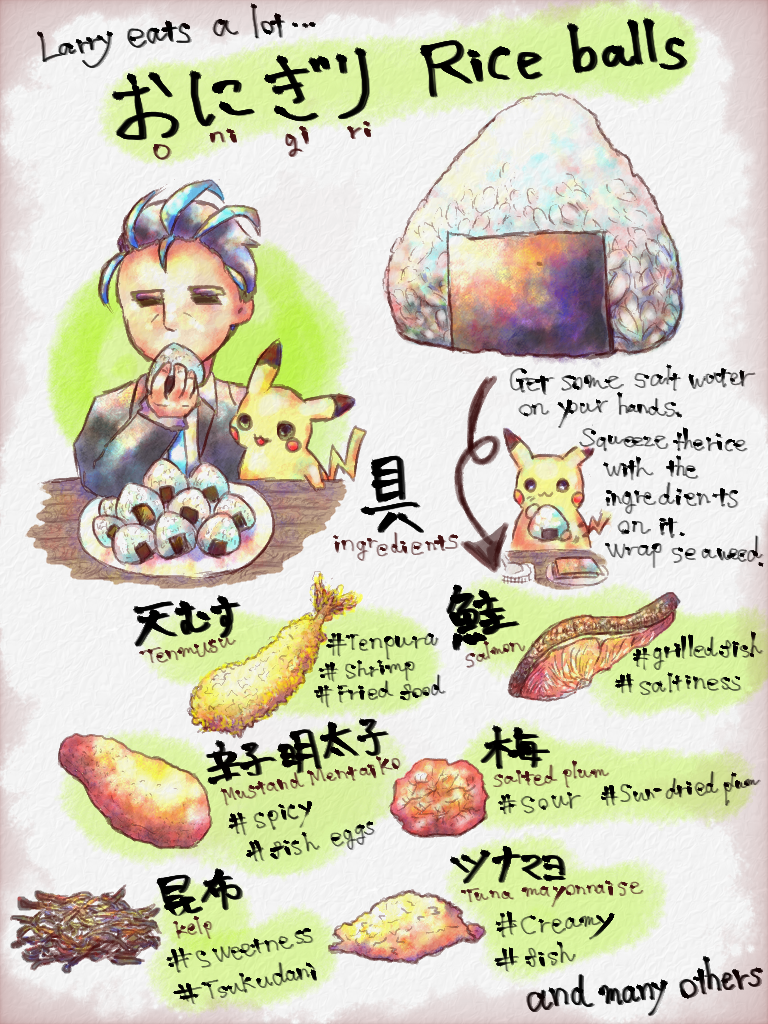 Larry eats a lot...
おにぎり Rice balls
o ni gi ri
Get some salt water
on your hands.
Squeeze the rice
with the
ingredients
on it.
Wrap seaweed.
具
ingredients
天むす
Tenmusu
#Tenpura
#Shrimp
#Fried food
鮭
salmon
#grilled fish
#saltiness
辛子明太子
Mustand Mentaiko
#spicy
#fish eggs
梅
salted plum
#sour #Sun-dried plum
昆布
kelp
#sweetness
#Tsukudani
ツナマヨ
Tuna mayonnaise
#Creamy
#fish
and many others